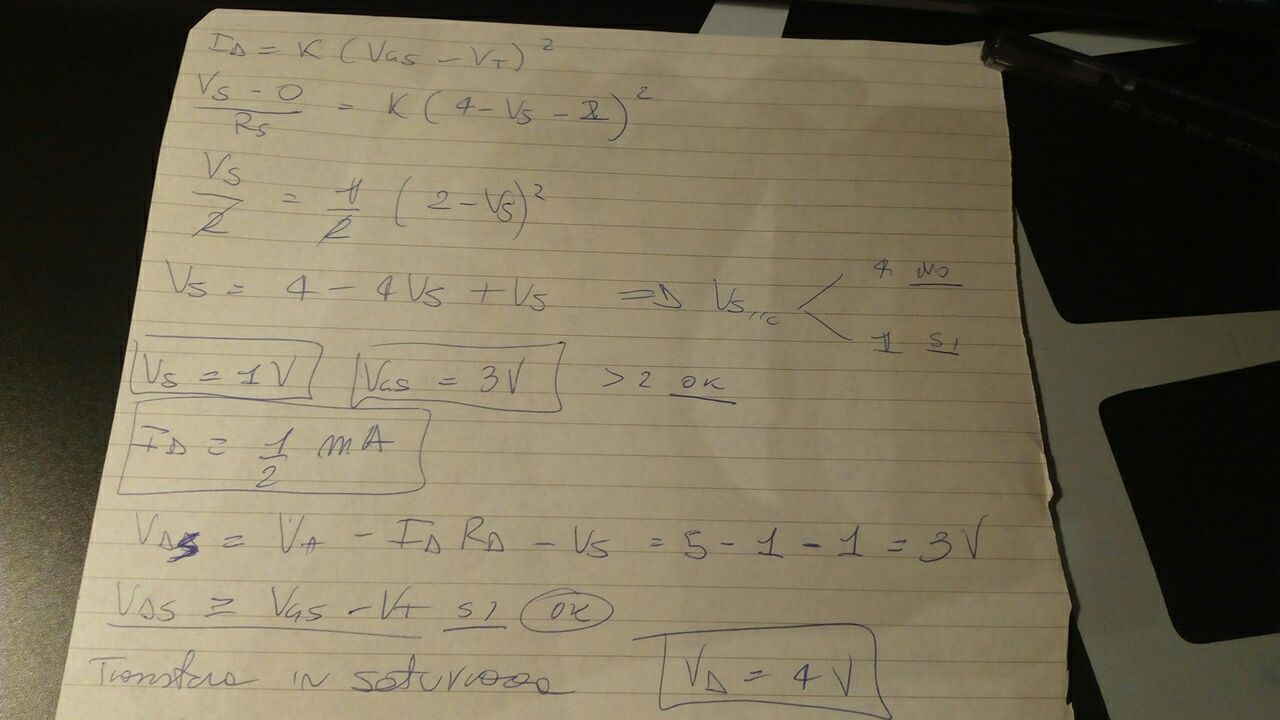 I_D = K (V_GS - V_T)²
(V_S - 0)/R_S = K (4 - V_S - 2)²
V_S/2 = 1/2 (2 - V_S)²
V_S = 4 - 4V_S + V_S => V_S1,2 < 4 NO
1 SI
V_S = 1V V_GS = 3V > 2 OK
I_D = 1/2 mA
V_DS = V_A - I_D R_D - V_S = 5 - 1 - 1 = 3V
V_DS ≥ V_GS - V_T SI OK
IN V_D = 4V